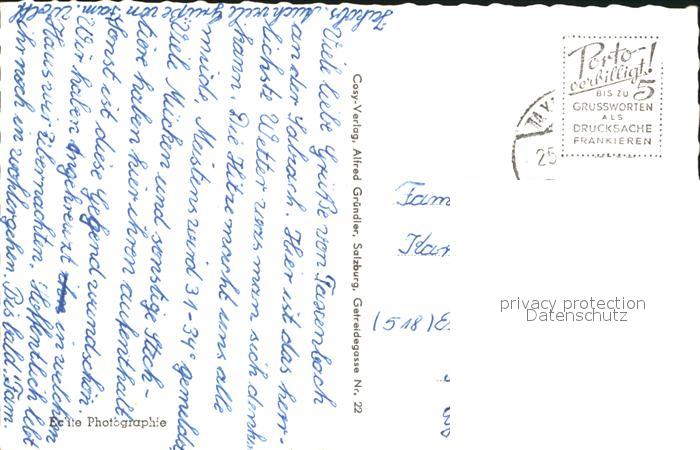 Viele liebe Grüße von Taxenbach
an der Salzach. Hier ist das herr-
lichste Wetter was man sich denken
kann. Die Hitze macht uns alle
müde, Meistens wird 31-34° gemeldet
Viele Mücken und sonstige Stech-
tiere haben hier ihren aufenthalt
Sonst ist diese Gegend wundschön.
Wir haben Angekreuzt in welchem
Haus wir übernachten. Hoffentlich lebt
ihr noch in wohlergehen. Bis bald. Fam.
Auch viele Grüße von Fam. Wolff
Cosy-Verlag, Alfred Gründler, Salzburg, Getreidegasse Nr. 22
Echte Photographie
Porto-
verbilligt!
BIS ZU 5
GRUSSWORTEN
ALS
DRUCKSACHE
FRANKIEREN
25
Fam
(518) E
privacy protection
Datenschutz